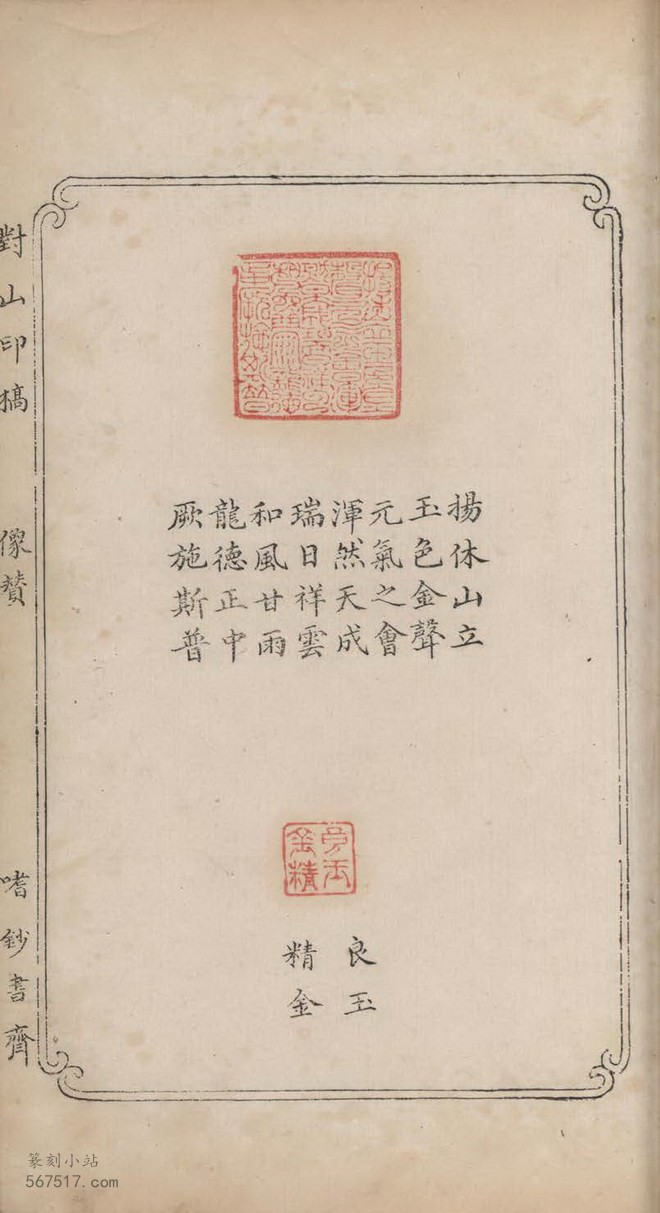 揚休山立
玉色金聲
元氣之會
渾然天成
瑞日祥雲
和風甘雨
龍德正中
厥施斯普
良玉
精金
對山印稿
像贊
嗜鈔書齊
篆刻小站
567517.com